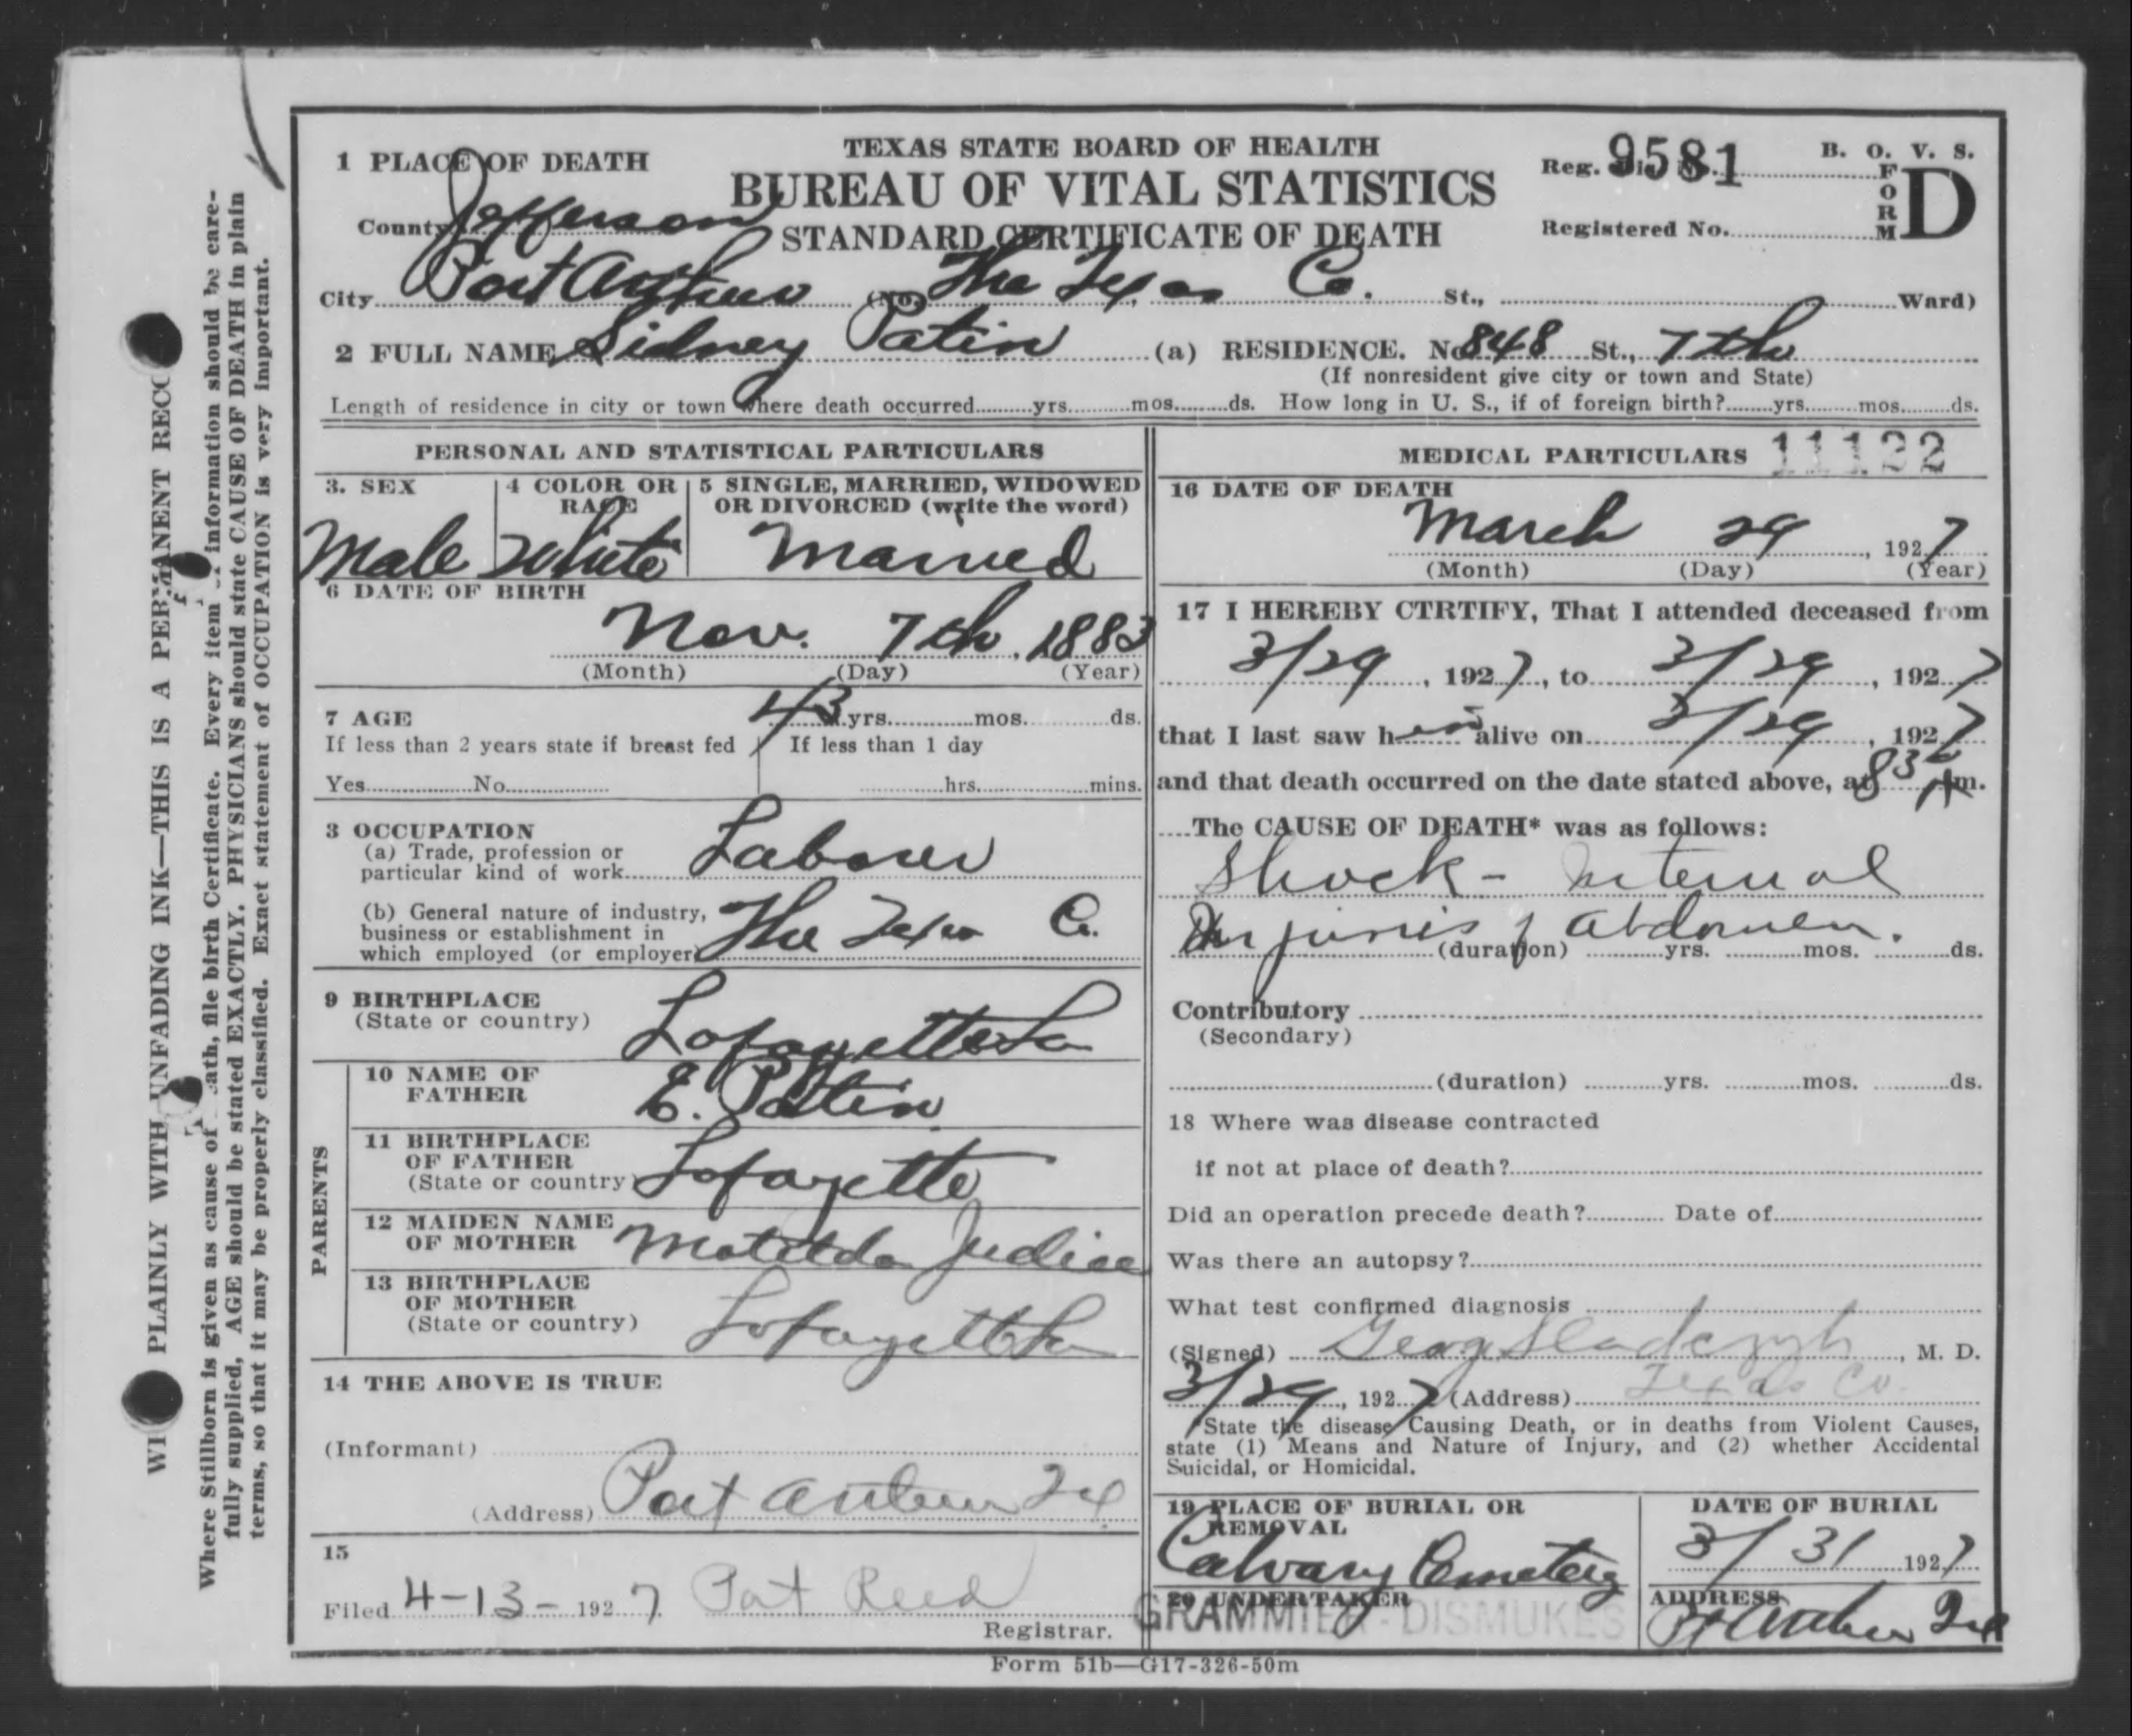 WI PLAINLY WITH UNFADING INK—THIS IS A PERMANENT RECO
Where Stillborn is given as cause of ath, file birth Certificate. Every item information should be care-
fully supplied, AGE should be stated EXACTLY. PHYSICIANS should state CAUSE OF DEATH in plain
terms, so that it may be properly classified. Exact statement of OCCUPATION is very important.
TEXAS STATE BOARD OF HEALTH
BUREAU OF VITAL STATISTICS
STANDARD CERTIFICATE OF DEATH
Reg. 9581
B. O. V. S.
FORM D
Registered No.
1 PLACE OF DEATH
County Jefferson
City Port Arthur (No. The Texas Co. St., Ward)
2 FULL NAME Sidney Patin (a) RESIDENCE. No 848 St., 7th
(If nonresident give city or town and State)
Length of residence in city or town where death occurred yrs. mos. ds. How long in U. S., if of foreign birth? yrs. mos. ds.
PERSONAL AND STATISTICAL PARTICULARS
3. SEX
Male
4 COLOR OR RACE
White
5 SINGLE, MARRIED, WIDOWED
OR DIVORCED (write the word)
Married
6 DATE OF BIRTH
Nov. 7th, 1883
(Month) (Day) (Year)
7 AGE 43 yrs. mos. ds.
If less than 2 years state if breast fed If less than 1 day
Yes No hrs. mins.
3 OCCUPATION
(a) Trade, profession or
particular kind of work Laborer
(b) General nature of industry,
business or establishment in
which employed (or employer) The Texas Co.
9 BIRTHPLACE
(State or country) Lafayette La
PARENTS
10 NAME OF
FATHER E. Patin
11 BIRTHPLACE
OF FATHER
(State or country) Lafayette
12 MAIDEN NAME
OF MOTHER Matilda Judice
13 BIRTHPLACE
OF MOTHER
(State or country) Lafayette La
14 THE ABOVE IS TRUE
(Informant)
(Address) Port Arthur Tex
15
Filed 4-13- 1927 Pat Reed
Registrar.
MEDICAL PARTICULARS 11122
16 DATE OF DEATH
March 29, 1927
(Month) (Day) (Year)
17 I HEREBY CTRTIFY, That I attended deceased from
3/29, 1927, to 3/29, 1927
that I last saw him alive on 3/29, 1927
and that death occurred on the date stated above, at 830 Am.
The CAUSE OF DEATH* was as follows:
Shock - Internal
Injuries of Abdomen.
(duration) yrs. mos. ds.
Contributory
(Secondary)
(duration) yrs. mos. ds.
18 Where was disease contracted
if not at place of death?
Did an operation precede death? Date of
Was there an autopsy?
What test confirmed diagnosis
(Signed) , M. D.
3/29, 1927 (Address) Texas Co.
*State the disease Causing Death, or in deaths from Violent Causes,
state (1) Means and Nature of Injury, and (2) whether Accidental
Suicidal, or Homicidal.
19 PLACE OF BURIAL OR
REMOVAL
Calvary Cemetery
DATE OF BURIAL
3/31 1927
20 UNDERTAKER
GRAMMIER-DISMUKES
ADDRESS
Pt Arthur Tex
Form 51b—G17-326-50m